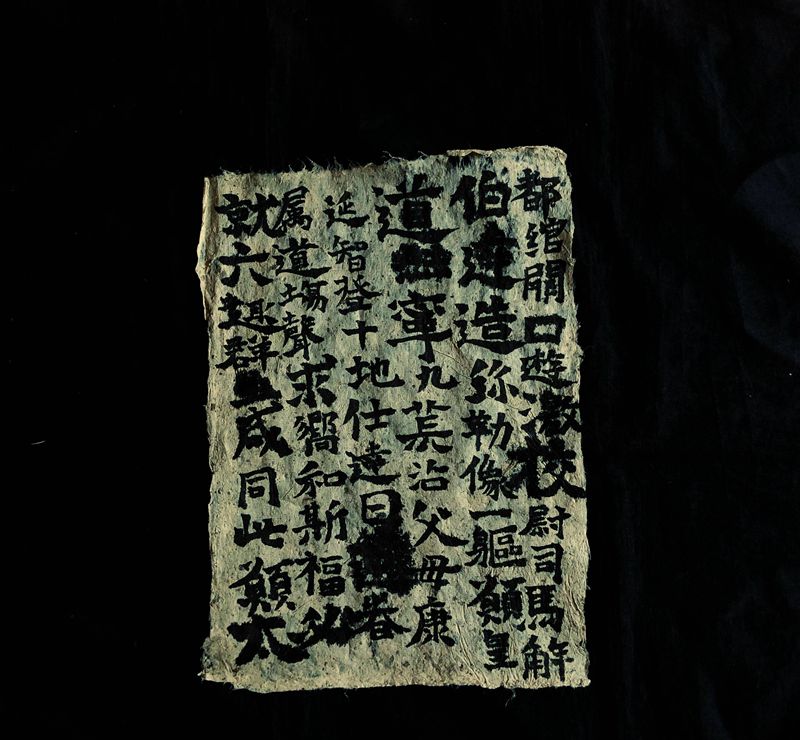 都綰關口遊激校尉司馬解
伯達造弥勒像一軀願皇
道寧九沾父母康
延智登十地仕達日眷
属道場聲求嚮和斯福必
就六趣群生咸同此願太